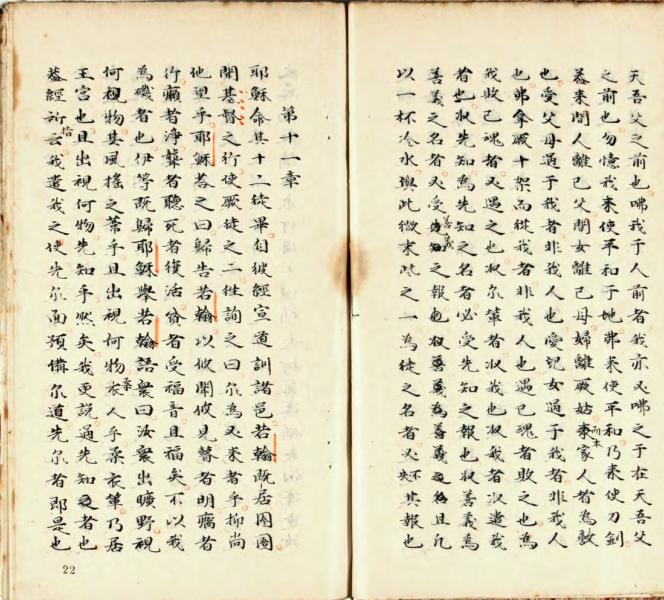 天吾父之前也咈我于人前者我亦必咈之于在天吾父
之前也勿憶我来使平和于地弗来使平和乃来使刀劍
葢来間人離己父間女離己母婦離厥姑而本家人者為敵
也愛父母過于我者非我人也愛兒女過于我者非我人
也弗拿厥十架而從我者非我人也遇己魂者敗之也為
我敗己魂者必遇之也收尔輩者收我也收我者收遣我
者也收先知為先知之名者必受先知之報也收善義為
善義之名者必受善義之報也且凡
以一杯冷水與此微末之一為徒之名者必不失其報也
第十一章
耶穌命其十二徒畢自彼經宣道訓諸邑若翰既居囹圄
聞基督之行使厥徒之二往詢之曰尔為必来者乎抑尚
他望乎耶穌荅之曰歸告若翰以攸聞攸見瞽者明癘者
行癩者淨聾者聽死者復活貧者受福音且福矣不以我
為礙者也伊等既歸耶穌舉若翰語衆曰汝衆出曠野視
何視物其風搖之葦乎且出視何物衣柔人乎柔衣輩乃居
王宮也且出視何物先知乎然矣我更説過先知者也
葢經所指云我遣我之使先尔面預備尔道先尔者即是也
22